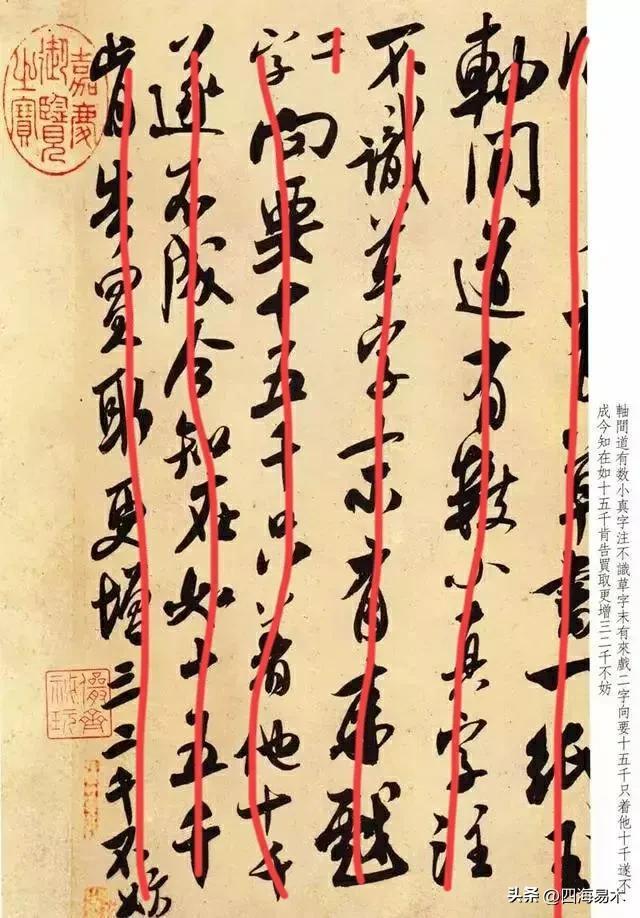 草書一紙玉
軸間道有數小真字注
不識草字末有來戲
二字向要十五千只着他十千
遂不成今知在如十五千
肯告買取更增三二千不妨
嘉慶御覽之寶
儼齋秘玩
軸間道有数小真字注不識草字末有來戲二字向要十五千只着他十千遂不
成今知在如十五千肯告買取更增三二千不妨
头条 @四海易木